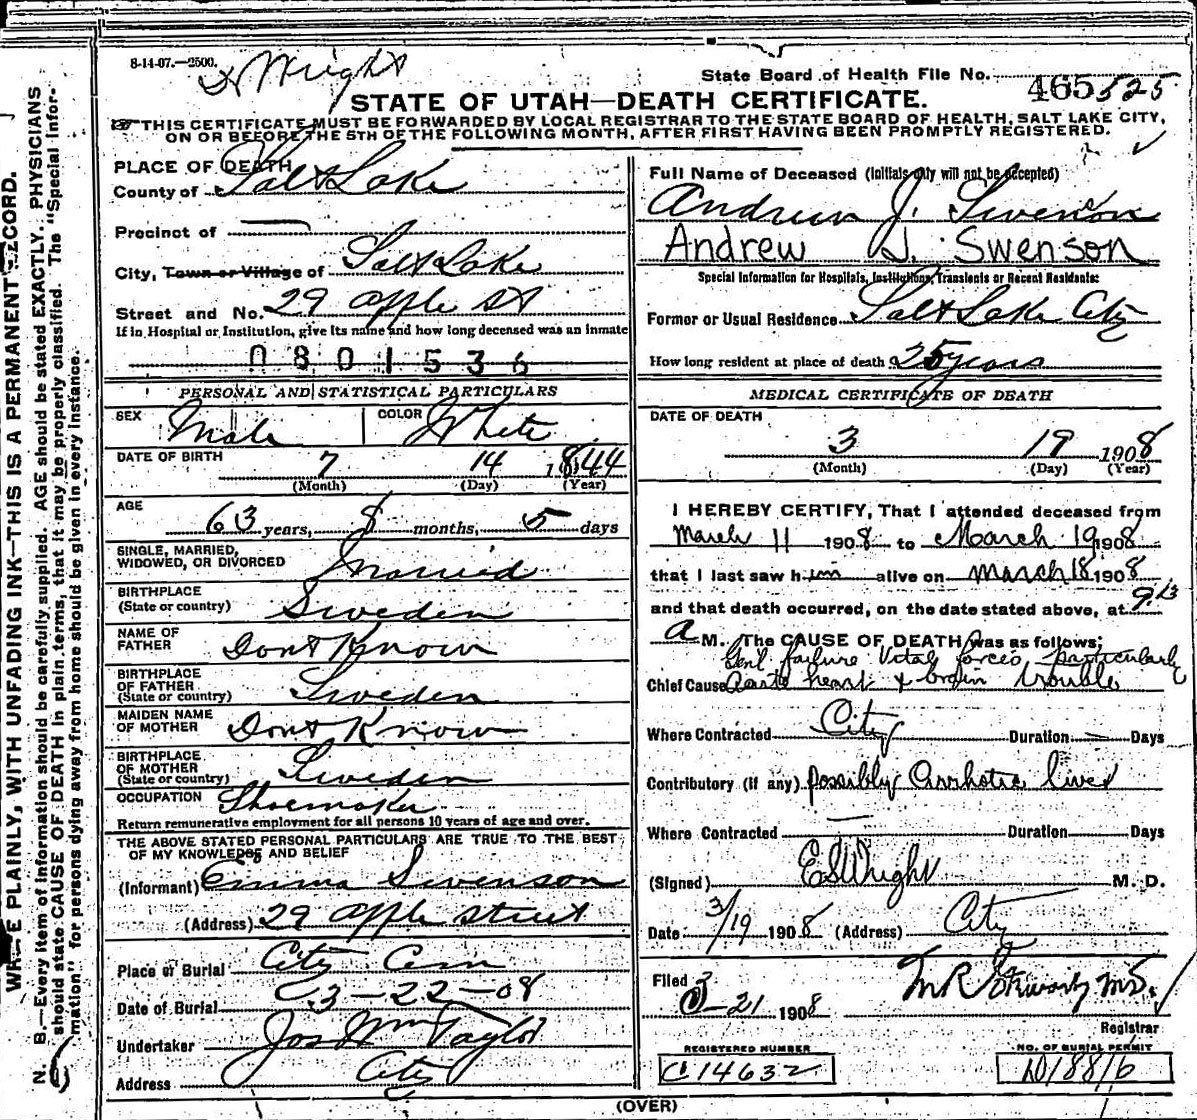 8-14-07.—2500.
Wright
State Board of Health File No. 465 525
STATE OF UTAH—DEATH CERTIFICATE.
THIS CERTIFICATE MUST BE FORWARDED BY LOCAL REGISTRAR TO THE STATE BOARD OF HEALTH, SALT LAKE CITY,
ON OR BEFORE THE 5TH OF THE FOLLOWING MONTH, AFTER FIRST HAVING BEEN PROMPTLY REGISTERED.
PLACE OF DEATH
County of Salt Lake
Precinct of —
City, Town or Village of Salt Lake
Street and No. 29 Apple St
If in Hospital or Institution, give its name and how long deceased was an inmate
0801536
PERSONAL AND STATISTICAL PARTICULARS
SEX Male COLOR White
DATE OF BIRTH 7 14 1844
(Month) (Day) (Year)
AGE 63 years, 8 months, 5 days
SINGLE, MARRIED,
WIDOWED, OR DIVORCED Married
BIRTHPLACE
(State or country) Sweden
NAME OF
FATHER Dont Know
BIRTHPLACE
OF FATHER
(State or country) Sweden
MAIDEN NAME
OF MOTHER Dont Know
BIRTHPLACE
OF MOTHER
(State or country) Sweden
OCCUPATION Shoemaker
Return remunerative employment for all persons 10 years of age and over.
THE ABOVE STATED PERSONAL PARTICULARS ARE TRUE TO THE BEST
OF MY KNOWLEDGE AND BELIEF
(Informant) Emma Swenson
(Address) 29 Apple street
Place of Burial City Cem
Date of Burial 3-22-08
Undertaker Jos Wm Taylor
Address City
Full Name of Deceased (Initials only will not be accepted)
Andrew J. Swenson
Andrew J. Swenson
Special Information for Hospitals, Institutions, Transients or Recent Residents:
Former or Usual Residence Salt Lake City
How long resident at place of death 25 years
MEDICAL CERTIFICATE OF DEATH
DATE OF DEATH
3 19 1908
(Month) (Day) (Year)
I HEREBY CERTIFY, That I attended deceased from
March 11 1908 to March 19 1908
that I last saw him alive on March 18 1908
and that death occurred, on the date stated above, at 9 13
A M. The CAUSE OF DEATH was as follows:
Genl failure Vital forces particularly
Chief Cause Acute heart & brain trouble
Where Contracted City Duration — Days
Contributory (if any) possibly cirrhotic liver
Where Contracted — Duration Days
(Signed) E S Wright M. D.
Date 3/19 1908 (Address) City
Filed 3-21 1908
M R M.D.
Registrar
REGISTERED NUMBER
C 14632
NO. OF BURIAL PERMIT
D/8816
(OVER)
WRITE PLAINLY, WITH UNFADING INK—THIS IS A PERMANENT RECORD.
N. B.—Every item of information should be carefully supplied. AGE should be stated EXACTLY. PHYSICIANS
should state CAUSE OF DEATH in plain terms, that it may be properly classified. The "Special Infor-
mation" for persons dying away from home should be given in every instance.